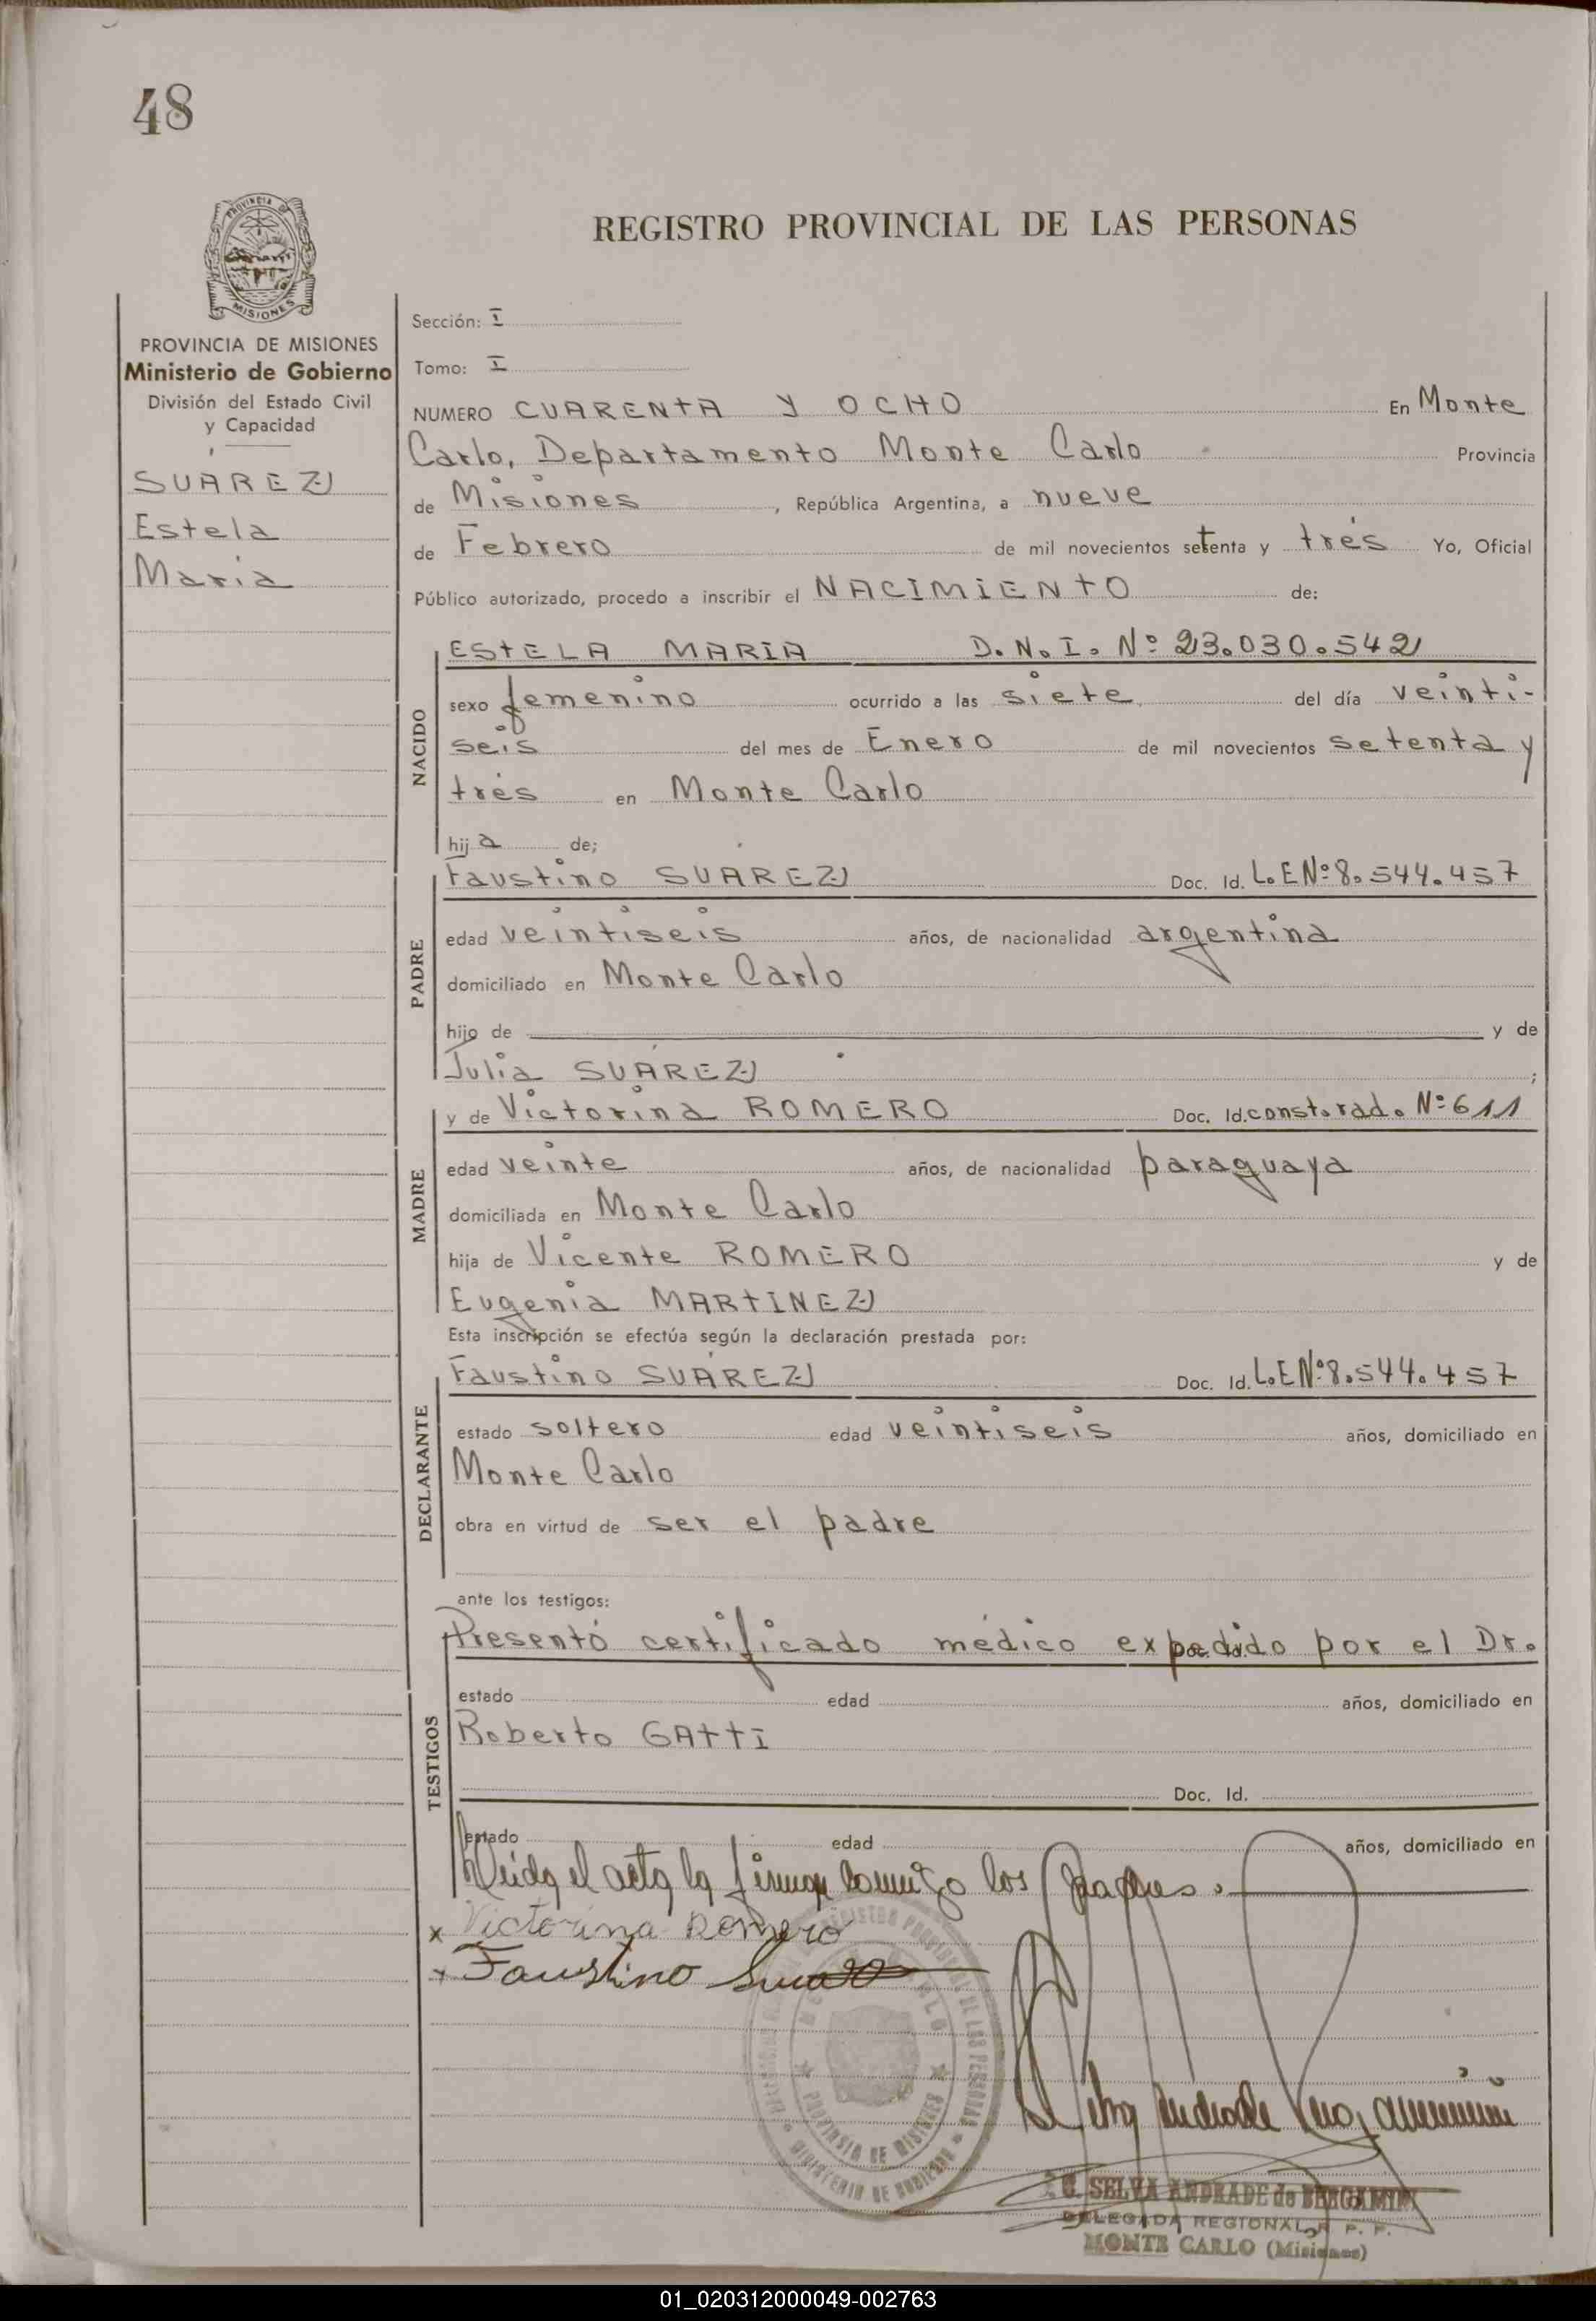 48
PROVINCIA DE
MISIONES
REGISTRO PROVINCIAL DE LAS PERSONAS
PROVINCIA DE MISIONES
Ministerio de Gobierno
División del Estado Civil
y Capacidad
SUÁREZ
Estela
Maria
Sección: I
Tomo: I
NUMERO CUARENTA Y OCHO En Monte
Carlo, Departamento Monte Carlo Provincia
de Misiones, República Argentina, a nueve
de Febrero de mil novecientos setenta y trés Yo, Oficial
Público autorizado, procedo a inscribir el NACIMIENTO de:
NACIDO
ESTELA MARIA D.N.I. Nº 23.030.542
sexo femenino ocurrido a las siete del día veinti-
seis del mes de Enero de mil novecientos setenta y
trés en Monte Carlo
hija de;
PADRE
Faustino SUÁREZ Doc. Id. L.E Nº 8.544.457
edad veintiseis años, de nacionalidad argentina
domiciliado en Monte Carlo
hijo de y de
Julia SUÁREZ ;
MADRE
y de Victorina ROMERO Doc. Id. const.rad. Nº 611
edad veinte años, de nacionalidad paraguaya
domiciliada en Monte Carlo
hija de Vicente ROMERO y de
Eugenia MARTINEZ
Esta inscripción se efectúa según la declaración prestada por:
DECLARANTE
Faustino SUÁREZ Doc. Id. L.E Nº 8.544.457
estado soltero edad veintiseis años, domiciliado en
Monte Carlo
obra en virtud de ser el padre
ante los testigos:
TESTIGOS
Presentó certificado médico expedido por el Dr.
estado edad años, domiciliado en
Roberto GATTI
Doc. Id.
estado edad años, domiciliado en
Leida el acta la firman conmigo los padres.
x Victorina Romero
x Faustino Suarez
REGISTRO PROVINCIAL DE LAS PERSONAS
PROVINCIA DE MISIONES
MINISTERIO DE GOBIERNO
Selva Andrade
C. SELVA ANDRADE de BERGAMINI
DELEGADA REGIONAL R. P. P.
MONTE CARLO (Misiones)
01_020312000049-002763